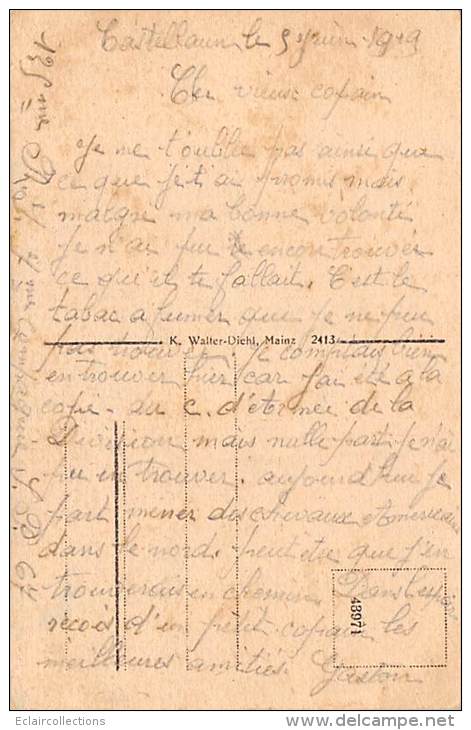 Castellaun le 5 Juin 1919
Cher vieux copain
Je ne t'oublie pas ainsi que
ce que je t'ai promis mais
malgré ma bonne volonté
je n'ai pu encore trouver
ce qu'il te fallait. C'est le
tabac a fumer que je ne peu
pas trouver. je comptais bien
K. Walter-Diehl, Mainz 2413
en trouver hier car j'ai été a la
cope. du C. d'Armée de la
Division mais nulle part je n'ai
pu en trouver. aujourd'hui je
part mener des chevaux Americains
dans le nord peut etre que j'en
trouverais en chemin. Dans l'espoir
recois d'un petit copain les
meilleures amitiés. Gaston
48971
125eme R 4eme Compagnie S. P. 64
Eclaircollections